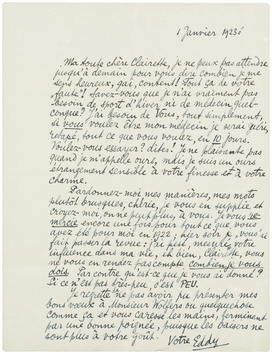 1 Janvier 1923
Ma toute chère Clairette, je ne peux pas attendre
jusqu'à demain pour vous dire combien je me
sens heureux, gai, content! Tout ça de votre
faute! Savez-vous que je n'ai vraiment pas
besoin de sport d'hiver ni de médecin quel-
conque? J'ai besoin de Vous, tout simplement,
si vous voulez être mon médecin je serai guéri,
retapé, tout ce que vous voulez, en 10 jours.
Voulez-vous essayer? dites! Je ne plaisante pas
quand je m'appelle ours, mais je suis un ours
étrangement sensible à votre finesse et à votre
charme.
Pardonnez-moi mes manières, mes mots
plutôt brusques, chérie, je vous en supplie et
croyez-moi, on ne peut plus, à vous. Je vous re-
mercie encore une fois pour tout ce que vous
avez été pour moi en 1922, hier soir je vous ai
fait passer la revue: j'ai pesé, mesuré votre
influence dans ma vie, et bien, Clairette, vous
ne vous en rendez pas compte combien je vous
dois. Par contre qu'est-ce que je vous ai donné?
Si ce n'est pas très-peu, c'est PEU.
Je regrette ne pas avoir pu présenter mes
bons voeux à Monsieur ou quelque chose
comme ça et vous caresse les mains, terminant
par une bonne poignée, puisque les baisers ne
sont plus à votre goût.
Votre Eddy